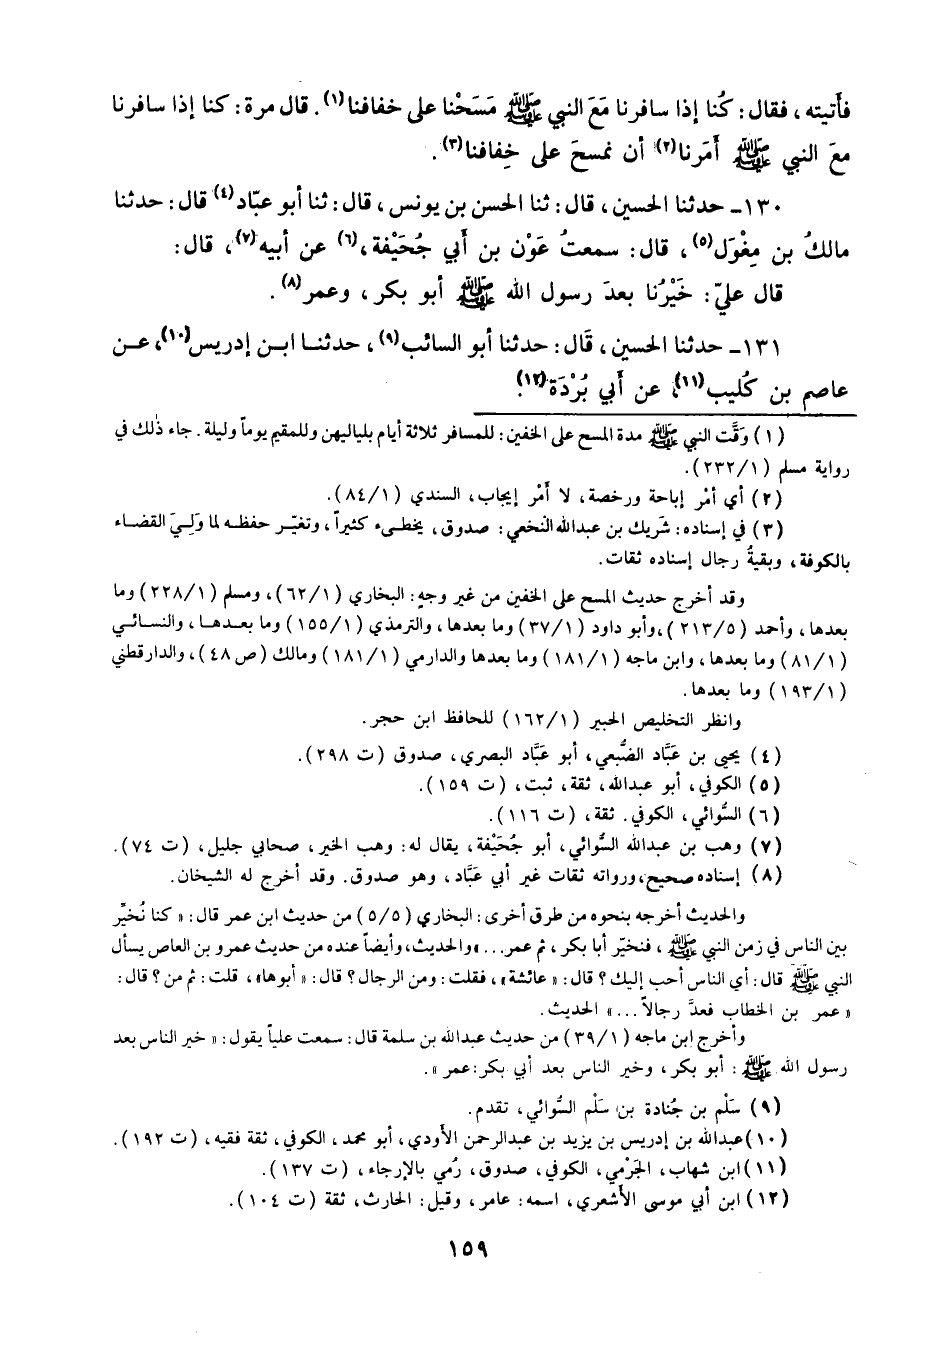 فأتيته ، فقال : كُنا إذا سافرنا مَعَ النبي ﷺ مَسَحْنا على خفافنا(١) . قال مرة : كنا إذا سافرنا
معَ النبي ﷺ أمَرنا(٢) أن نمسحَ على خِفافنا(٣) .
١٣٠ـ حدثنا الحسين ، قال : ثنا الحسن بن يونس ، قال : ثنا أبو عبّاد(٤) قال : حدثنا
مالكُ بن مِغْوَل(٥) ، قال : سمعتُ عَوْن بن أبي جُحَيْفة ،(٦) عن أبيه(٧) ، قال :
قال عليّ : خَيْرُنا بعدَ رسول الله ﷺ أبو بكر ، وعمر(٨) .
١٣١ـ حدثنا الحسين ، قَال : حدثنا أبو السائب(٩) ، حدثنا ابن إدريس(١٠) ، عن
عاصم بن كُليب(١١) ، عن أبي بُرْدَة(١٢) .
(١) وَقَّت النبي ﷺ مدة المسح على الخفين : للمسافر ثلاثة أيام بلياليهن وللمقيم يوماً وليلة . جاء ذٰلك في
رواية مسلم (٢٣٢/١) .
(٢) أي أمْر إباحة ورخصة ، لا أَمْر إيجاب ، السندي (٨٤/١) .
(٣) في إسناده : شَريك بن عبدالله النَخعي : صدوق ، يخطىء كثيراً ، وتغيّر حفظه لما وَلِيَ القضاء
بالكوفة ، وبقيةُ رجال إسناده ثقات .
وقد أخرج حديث المسح على الخفين من غير وجه : البخاري (٦٢/١) ، ومسلم (٢٢٨/١) وما
بعدها ، وأحمد (٢١٣/٥) ، وأبو داود (٣٧/١) وما بعدها ، والترمذي (١٥٥/١) وما بعدها ، والنسائي
(٨١/١) وما بعدها ، وابن ماجه (١٨١/١) وما بعدها والدارمي (١٨١/١) ومالك (ص ٤٨) ، والدارقطني
(١٩٣/١) وما بعدها .
وانظر التخليص الحبير (١٦٢/١) للحافظ ابن حجر .
(٤) يحيى بن عَبَّاد الضُّبعي ، أبو عَبَّاد البصري ، صدوق (ت ٢٩٨) .
(٥) الكوفي ، أبو عبدالله ، ثقة ، ثبت ، (ت ١٥٩) .
(٦) السُّوائي ، الكوفي . ثقة ، (ت ١١٦) .
(٧) وهب بن عبدالله السُّوائي ، أبو جُحَيْفة ، يقال له : وهب الخير ، صحابي جليل ، (ت ٧٤) .
(٨) إسناده صحيح ، ورواته ثقات غير أبي عَبَّاد ، وهو صدوق . وقد أخرج له الشيخان .
والحديث أخرجه بنحوه من طرق أخرى : البخاري (٥/٥) من حديث ابن عمر قال : « كنا نُخَيِّر
بين الناس في زمن النبي ﷺ ، فنخيّر أبا بكر ، ثم عمر... » والحديث ، وأيضاً عنده من حديث عمرو بن العاص يسأل
النبي ﷺ قال : أي الناس أحب إليك ؟ قال : « عائشة » ، فقلت : ومن الرجال ؟ قال : « أبوها » ، قلت : ثم من ؟ قال :
« عمر بن الخطاب فعدَّ رجالاً ... » الحديث .
وأخرج ابن ماجه (٣٩/١) من حديث عبدالله بن سلمة قال : سمعت علياً يقول : « خير الناس بعد
رسول الله ﷺ : أبو بكر ، وخير الناس بعد أبي بكر : عمر » .
(٩) سَلْم بن جُنادة بن سَلْم السُّوائي ، تقدم .
(١٠) عبدالله بن إدريس بن يزيد بن عبدالرحمن الأودي ، أبو محمد ، الكوفي ، ثقة فقيه ، (ت ١٩٢) .
(١١) ابن شهاب ، الجَرْمي ، الكوفي ، صدوق ، رُمي بالإرجاء ، (ت ١٣٧) .
(١٢) ابن أبي موسى الأشعري ، اسمه : عامر ، وقيل : الحارث ، ثقة (ت ١٠٤) .
١٥٩